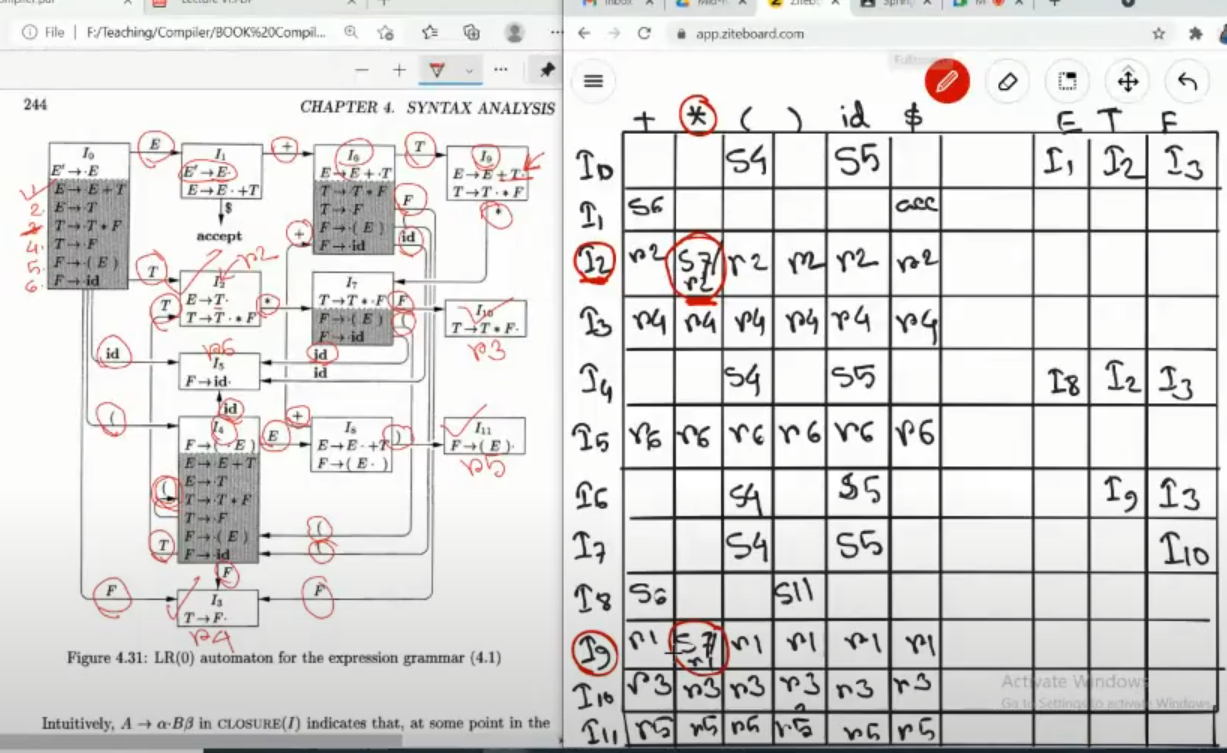 File
F:/Teaching/Compiler/BOOK%20Compil...
244
CHAPTER 4. SYNTAX ANALYSIS
I₀
E'→·E
E→·E+T
2. E→·T
T→·T*F
4. T→·F
5. F→·(E)
6. F→·id
E
I₁
E'→E·
E→E·+T
$
accept
+
I₆
E→E+·T
T→·T*F
T→·F
F→·(E)
F→·id
T
I₉
E→E+T·
T→T·*F
*
F
(
id
+
T
I₂
r2
E→T·
T→T·*F
T
*
I₇
T→T*·F
F→·(E)
F→·id
F
(
I₁₀
T→T*F·
r3
id
r6
I₅
F→id·
id
id
id
(
I₄
F→(·E)
E→·E+T
E→·T
T→·T*F
T→·F
F→·(E)
F→·id
E
+
I₈
E→E·+T
F→(E·)
)
I₁₁
F→(E)·
r5
(
T
(
(
F
F
F
I₃
T→F·
r4
Figure 4.31: LR(0) automaton for the expression grammar (4.1)
Intuitively, A → α·Bβ in CLOSURE(I) indicates that, at some point in the
app.ziteboard.com
+ * ( ) id $ E T F
I0 S4 S5 I1 I2 I3
I1 S6 acc
I2 r2 S7/r2 r2 r2 r2 r2
I3 r4 r4 r4 r4 r4 r4
I4 S4 S5 I8 I2 I3
I5 r6 r6 r6 r6 r6 r6
I6 S4 S5 I9 I3
I7 S4 S5 I10
I8 S6 S11
I9 r1 S7/r1 r1 r1 r1 r1
I10 r3 r3 r3 r3 r3 r3
I11 r5 r5 r5 r5 r5 r5
Activate Windows
Go to Settings to activate Windows.